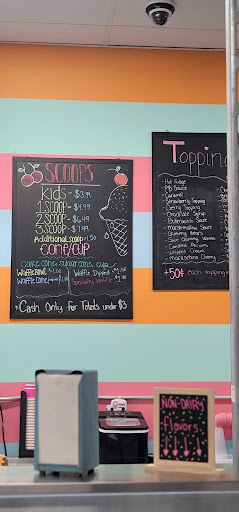 SCOOPS
Kids - $3.99
1 SCOOP - $4.99
2 SCOOP - $6.49
3 SCOOP - $7.99
Additional scoop $1.50
CONE/CUP
cake cone, sugar cone, cup
Waffle Bowl $1.50
Waffle Dipped
Waffle Cone
Specialty Waffle
*Cash Only for Totals under $3
Topping
Hot Fudge
PB Sauce
Caramel
Strawberry Topping
Cherry Topping
Chocolate Syrup
Butterscotch Sauce
Marshmallow Sauce
Gummy Bears
Sour Gummy Worms
Whipped Cream
Maraschino Cherry
+50¢ each topping
NON-DAIRY
Flavors